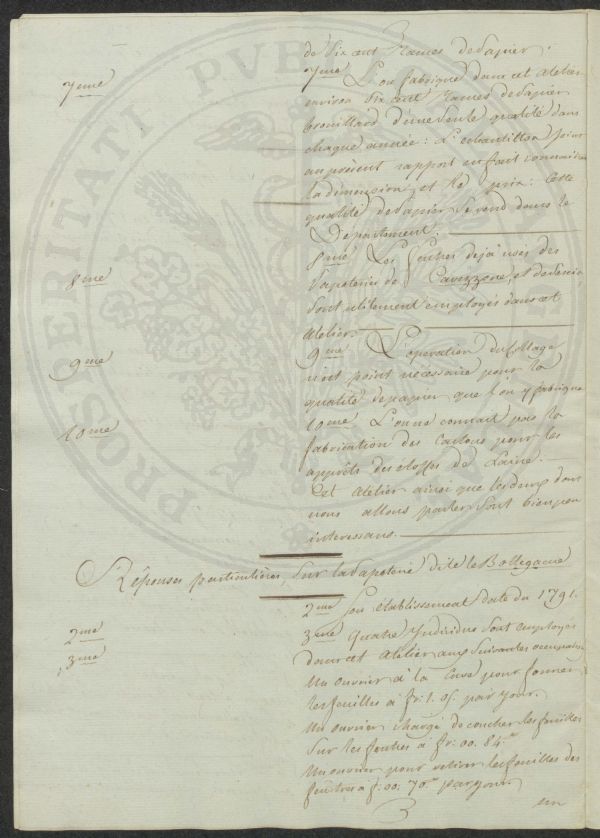 de Six cent Rames de Papier.
7eme
7eme L'on fabrique dans cet Atelier
environ Six cent Rames de Papier
brouillard d'une Seule qualité dans
chaque année : L'echantillon joint
au présent rapport en fait connaitre
la dimension, et le prix : Cette
qualité de Papier Se vend dans le
Département.
8eme
8eme Les feutres dejà usés des
Papeteries de Cavezzone, et
Sont utilement employés dans cet
Atelier.
9eme
9eme L'operation du Collage
n'est point nécessaire pour la
qualité de papier que l'on y fabrique
10eme
10eme L'on ne connait pas la
fabrication des Cartons pour les
apprêts des étoffes de Laine.
Cet Atelier ainsi que les deux dont
nous allons parler Sont bien peu
interessans.
Réponses particulières, Sur la Papeterie dite le Bottegone
2eme
2eme Son établissement date du 1791.
3eme
3eme Quatre Individus Sont employés
dans cet Atelier aux Suivantes occupations
Un ouvrier à la Cuve pour former
les feuilles à fr. 1. 05. par jour.
Un ouvrier chargé de coucher les feuilles
Sur les feutres à fr: 00. 84.
Un ouvrier pour retirer les feuilles des
feutres à f: 00. 70. par jour.
3
un
PROSPERITATI PUBL